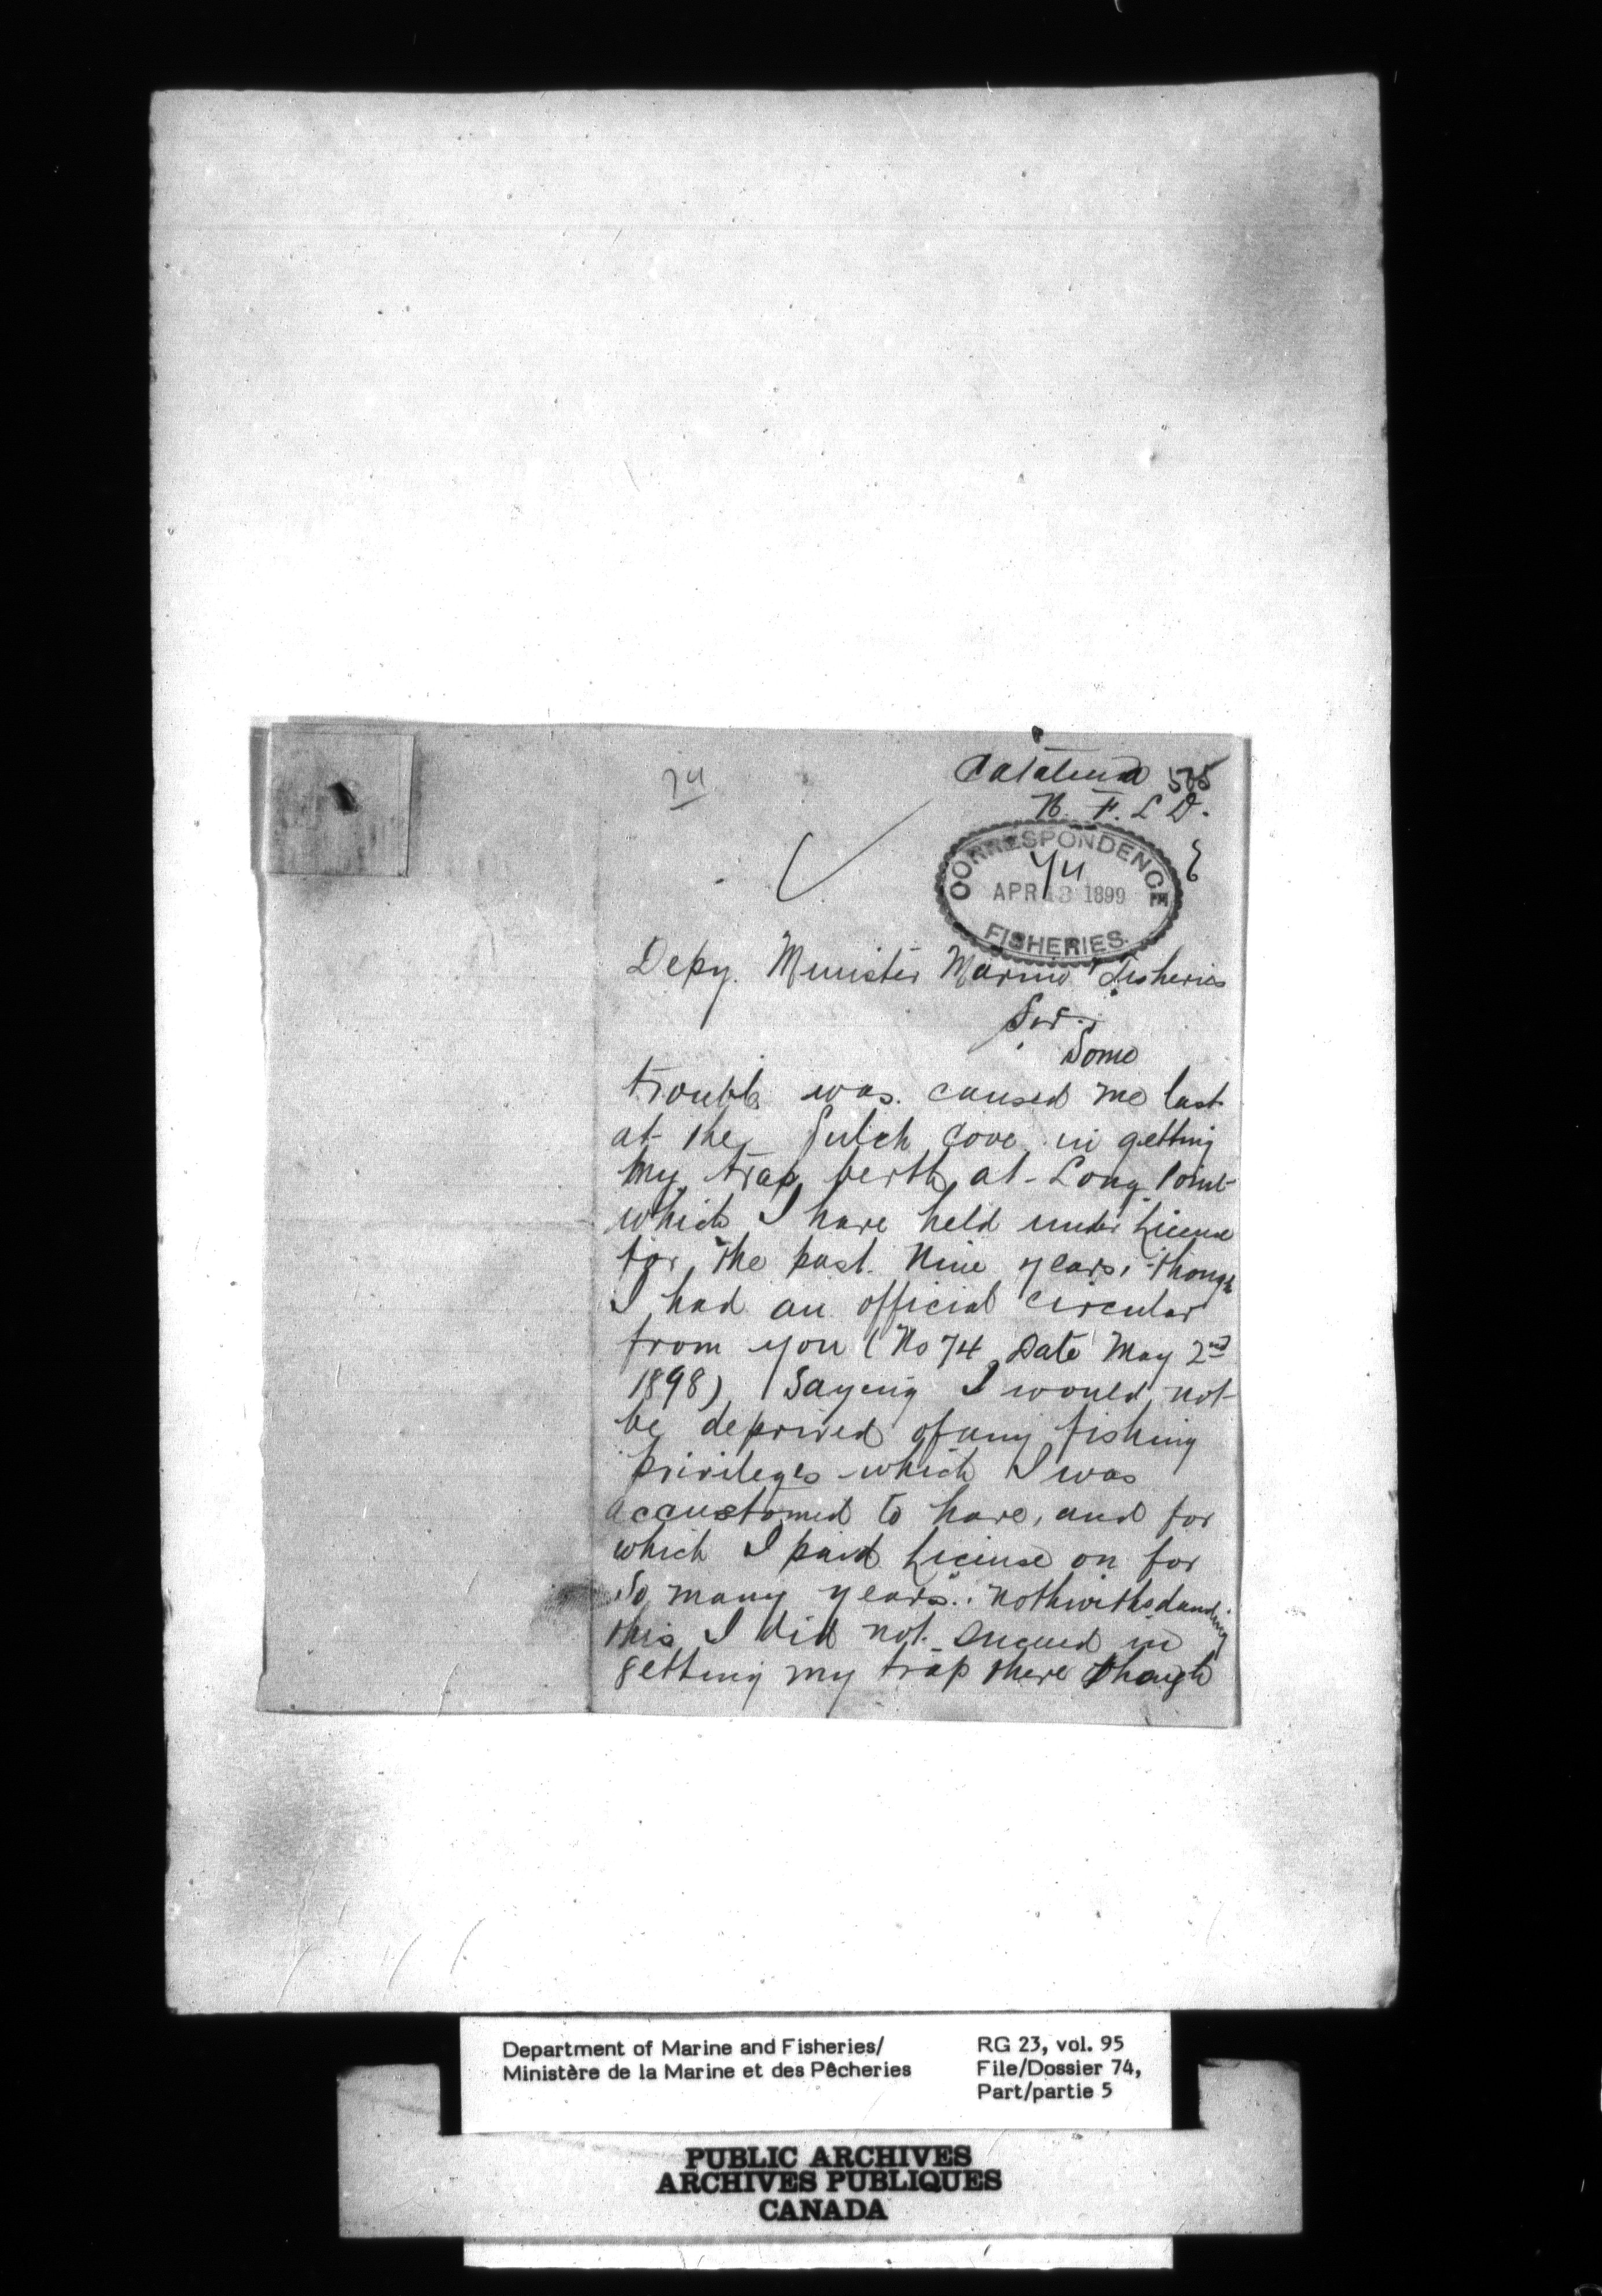 74
Catalina 575
N. F. L D.
CORRESPONDENCE
74
APR 13 1899
FISHERIES.
Depy. Minister Marine & Fisheries
Sir:
Some
trouble was caused me last
at the Gulch Cove in getting
my trap berth at Long Point
which I have held under License
for the past Nine years, though
I had an official circular
from you (No 74 Date May 2nd
1898) Sayeing I would not
be deprived of any fishing
privileges which I was
accustomed to have, and for
which I paid License on for
so many years. Nothwithsdanding
this I did not succeed in
getting my trap there though
Department of Marine and Fisheries/
Ministère de la Marine et des Pêcheries
RG 23, vol. 95
File/Dossier 74,
Part/partie 5
PUBLIC ARCHIVES
ARCHIVES PUBLIQUES
CANADA